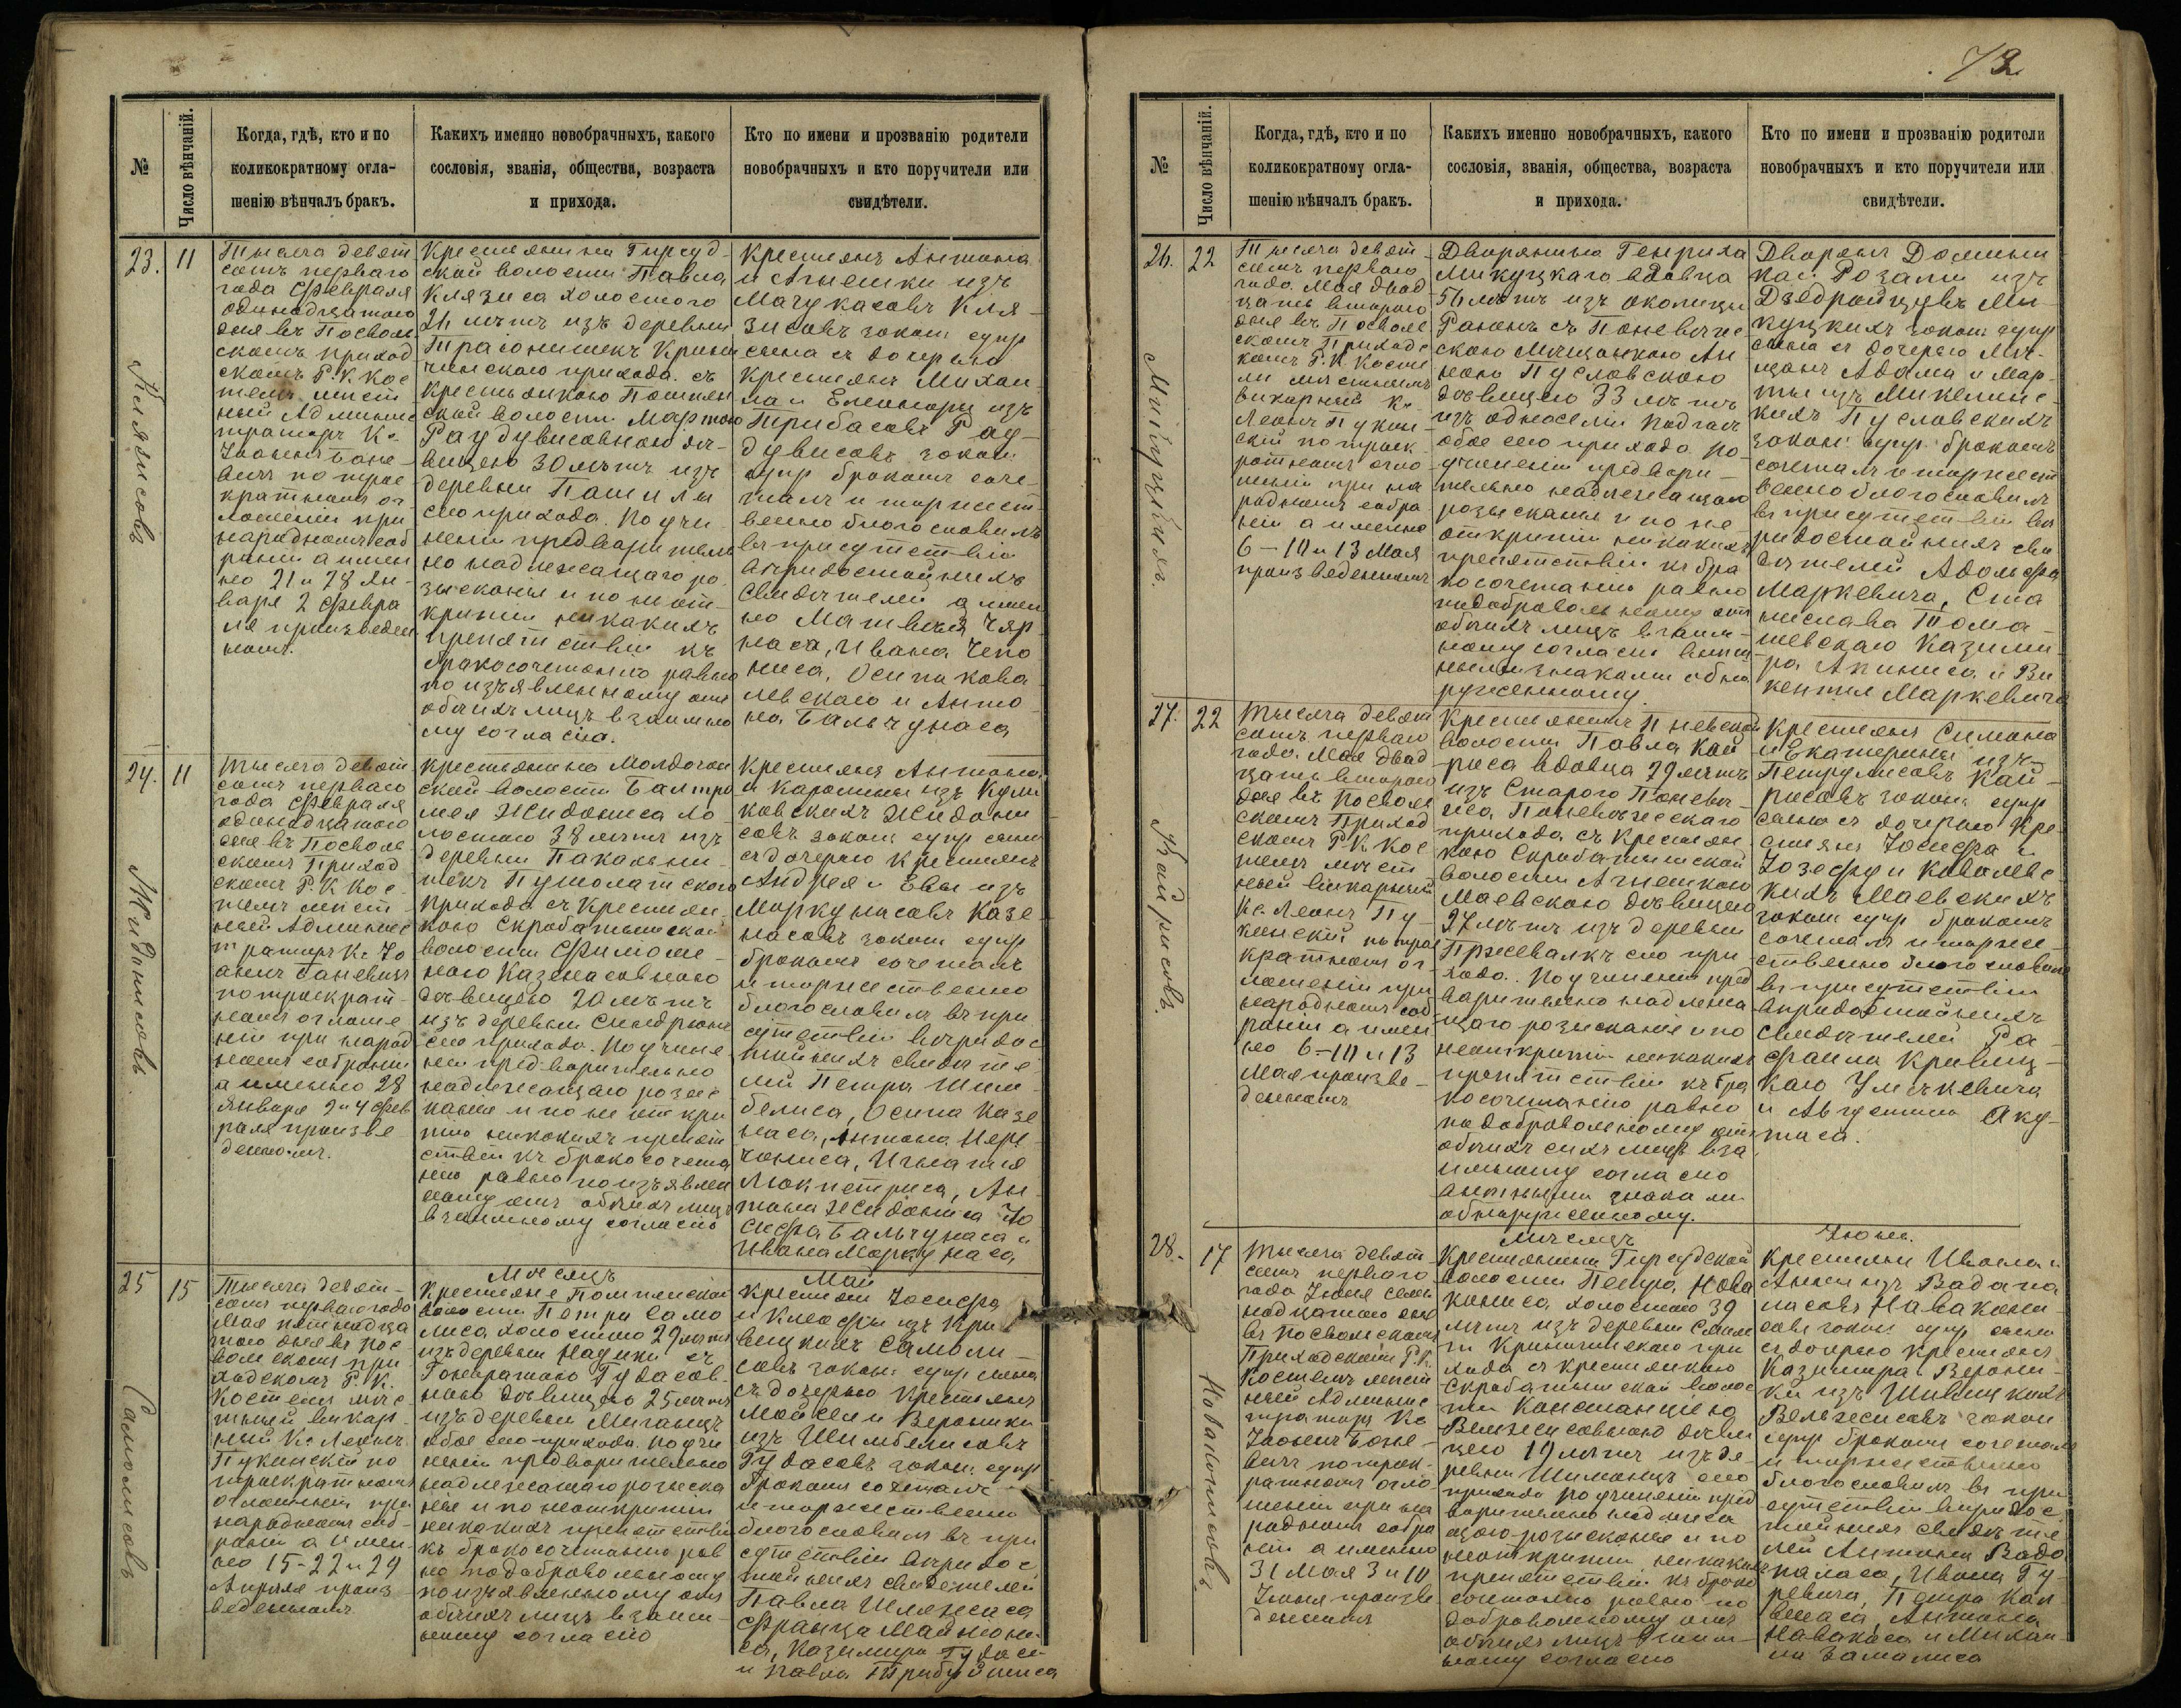 73
№
Число вѣнчаній.
Когда, гдѣ, кто и по
коликократному огла-
шенію вѣнчалъ бракъ.
Какихъ именно новобрачныхъ, какого
сословія, званія, общества, возраста
и прихода.
Кто по имени и прозванію родители
новобрачныхъ и кто поручители или
свидѣтели.
23.
11
Клязисовъ
Тысяча девят
сотъ перваго
года Февраля
одинадцатаго
дня въ Посволь
скомъ приход
скомъ Р. К. Кос
телѣ мѣст
ный Админис
траторъ Кс.
по трое
кратномъ ог
лашеніи при
народномъ соб
раніи а имен
но 21 и 28 Ян-
варя 2 Февра
ля произведен
номъ.
Крестьянина Гирсуд-
ской волости Павла
Клязиса холостого
24 лѣтъ изъ деревни
чинскаго прихода съ
крестьянкою Помпян
ской волости Мартою
Раудувисовною дѣ-
вицею 30 лѣтъ изъ
деревни
сего прихода. По учи-
неніи предваритель
но надлежащаго ро-
зысканія и по неот-
крытіи никакихъ
препятствій къ
бракосочетанію равно
по изъявленному отъ
обѣихъ лицъ взаимно
му согласію.
Крестьянъ Антона
и Агнешки изъ
Мачукасовъ Кля-
зисовъ закон. супр
сына съ дочерью
Крестьянъ Михаи-
ла и Елеоноры изъ
Трибасовъ Рау-
дувисовъ закон.
супр бракомъ соче-
талъ и торжест-
венно благословилъ
въ присутствіи
вѣридостойныхъ
свидѣтелей а имен
но Матвѣя Чяр-
наса, Ивана Чепо
ниса, Осипа Кова-
левскаго и Анто-
на Бальчунаса
24.
11
Жидонисовъ
Тысяча девят
сотъ перваго
года Февраля
одинадцатаго
дня въ Посволь
скомъ Приход
скомъ Р. К. Кос
телѣ мѣст
ный Админис
траторъ Кс.
по троекрат-
номъ оглаше
ніи при народ
номъ собраніи
а именно 28
Января 2 и 4 Фев
раля произве
денномъ.
Крестьянина
ской волости Балтро
мея Жидониса хо
лостаго 38 лѣтъ изъ
деревни
Пушолатскаго
прихода съ крестьян
кою Скробатышской
волости Филоме-
ною Казенасовною
дѣвицею 20 лѣтъ
изъ деревни
сего прихода. По учине
ніи предварительно
надлежащаго розыс
канія и по не откры
тію никакихъ препят
ствій къ бракосочета
нію равно по изъявлен
ному отъ обѣихъ лицъ
взаимному согласію
Крестьянъ Антона
и Каролины изъ Кули
ковскихъ Жидони
совъ закон. супр сына
съ дочерью Крестьянъ
Андрея и Евы изъ
Маркунасовъ Казе
насовъ закон. супр
бракомъ сочеталъ
и торжественно
благословилъ въ при
сутствіи вѣридос
тойныхъ свидѣте
лей Петра Шим-
белиса, Осипа Казе
наса, Антона
Игнатія
Ан
тона Жидониса Іо
сифа Бальчунаса и
Ивана Маркунаса
25
15
Самолисовъ
Мѣсяцъ
Май
Тысяча девят-
сотъ перваго года
Мая пятнадца
таго дня въ Пос
вольскомъ при
ходскомъ Р. К.
Костелѣ мѣс
тный викар
ный Кс. Леонъ
Пуканскій по
троекратномъ
оглашеніи при
народномъ соб-
раніи а имен-
но 15-22 и 29
Апрѣля произ
веденномъ
Крестьяне Помпянской
волости Петра Само
лиса холостого 29 лѣтъ
изъ деревни съ
Гонаратою Гудасов-
ною дѣвицею 25 лѣтъ
изъ деревни
обое сего прихода. По учи
неніи предварительно
надлежащаго розыска
нія и по неоткрытіи
никакихъ препятствій
къ бракосочетанію рав
но по добровольному
по изъявленному отъ
обѣихъ лицъ взаим-
ному согласію
Крестьянъ Іосифа
и Клеофы изъ Кри
вицкихъ Самоли-
совъ закон. супр сына
съ дочерью крестьянъ
Мойсея и Вероники
изъ Шимбелисовъ
Гудасовъ закон. супр
бракомъ сочеталъ
и торжественно
благословилъ въ при
сутствіи вѣридос
тойныхъ свидѣтелей
Павла Шляжиса
Франца
Казимира Гудаса
и Павла
№
Число вѣнчаній.
Когда, гдѣ, кто и по
коликократному огла-
шенію вѣнчалъ бракъ.
Какихъ именно новобрачныхъ, какого
сословія, званія, общества, возраста
и прихода.
Кто по имени и прозванію родители
новобрачныхъ и кто поручители или
свидѣтели.
26.
22
Микуцкихъ.
Тысяча девят-
сотъ перваго
года Мая двад
цать второго
дня въ Посволь
скомъ Приходс
комъ Р. К. Косте
лѣ мѣстный
викарный Кс.
Леонъ Пукан-
скій по троек-
ратномъ огла
шеніи при на
родномъ собра
ніи а именно
6-10 и 13 Мая
произведенномъ
Дворянина Генриха
Микуцкаго вдовца
56 лѣтъ изъ околицы
съ Поневѣжс
скою мѣщанкою Ан
ною Пусловскою
дѣвицею 33 лѣтъ
изъ односелія
обое сего прихода по
учиненіи предвари-
тельно надлежащаго
розысканія и по не-
открытіи никакихъ
препятствій къ бра
косочетанію равно
по добровольному отъ
обѣихъ лицъ взаим-
ному согласію внѣш
ными знаками обна
руженному.
Дворянъ Домини
ка и Розаліи изъ
Дзедройцувъ Ми-
куцкихъ закон. супр
сына съ дочерью мѣ-
щанъ Адама и Мар
ты изъ
Пусловскихъ
закон. супр. бракомъ
сочеталъ и торжест
венно благословилъ
въ присутствіи вѣ
ридостойныхъ сви
дѣтелей Адольфа
Маркевича, Ста
нислава Тома-
шевскаго Казими-
ра и Ви
кентія Маркевича
27.
22
Кайрисовъ.
Тысяча девят
сотъ перваго
года Мая двад
цать второго
дня въ Посволь
скомъ Приход
скомъ Р. К. Кос
телѣ мѣст
ный викарный
Кс. Леонъ Пу-
канскій по трое
кратномъ ог-
лашеніи при
народномъ соб
раніи а имен
но 6-10 и 13
Мая произве-
денномъ
Крестьянинъ Пневской
волости Павла Кай
риса вдовца 29 лѣтъ
изъ Старого Поневѣ-
жа, Поневѣжескаго
прихода съ крестьян
кою Скробатышской
волости Агнешкою
Маевскою дѣвицею
27 лѣтъ изъ деревни
сего при
хода. По учиненіи пред
варительно надлежа
щаго розысканіе и по
неоткрытіи никакихъ
препятствій къ бра
косочетанію равно
по добровольному отъ
обѣихъ сихъ лицъ вза
имному согласію
внѣшными знаками
обнаруженному.
Крестьянъ Симона
и Екатерины изъ
Петрулисовъ Кай-
рисовъ закон. супр
сына съ дочерью Кре-
стьянъ Іосифа и
Юзефы и Ковалевс-
кихъ Маевскихъ
закон. супр бракомъ
сочеталъ и торже-
ственно благословилъ
въ присутствіи
вѣридостойныхъ
свидѣтелей Ра-
фаила Кривиц-
каго
и Августина Яку-
таса.
28.
17
Новаконисовъ
Мѣсяцъ
Іюнь.
Тысяча девят
сотъ перваго
года Іюня сем
надцатаго дня
въ Посвольскомъ
Приходскомъ Р. К.
Костелѣ мѣст
ный Админис
траторъ Кс.
по троек-
ратномъ огла
шеніи при на
родномъ собра
ніи а именно
31 Мая 3 и 10
Іюня произве
денномъ
Крестьянина Гирсудской
волости Петра Нова
кониса холостаго 39
лѣтъ изъ деревни
Криничинскаго при
хода съ крестьянкою
Скробатышской волос
ти Констанціею
дѣви
цею 19 лѣтъ изъ де
ревни сего
прихода по учиненіи пред
варительно надлежа
щаго розысканія и по
неоткрытіи никакихъ
препятствій къ брако
сочетанію равно по
добровольному отъ
обѣихъ лицъ взаим-
ному согласію
Крестьянъ Ивана и
Анны изъ Вадапа
ласовъ Навакони
совъ закон. супр сына
съ дочерью крестьянъ
Казимира и Верони-
ки изъ
Вележисовъ закон
супр бракомъ сочеталъ
и торжественно
благословилъ въ при
сутствіи вѣридос
тойныхъ свидѣте
лей Антона Вадо
паласа, Ивана Гу-
ревича, Петра
Антона
и Михаи
ла Замалиса